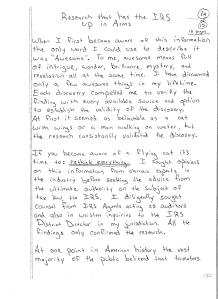 Research that has the IRS
up in Arms
18 pages
When I first became aware of this information
the only word I could use to describe it
was "Awesome". To me, awesome means full
of intrigue, wonder, brilliance, mystery, and
revelation all at the same time. I have discovered
only a few awesome things in my lifetime.
Each discovery compelled me to verify the
finding with every available source and option
to establish the validity of the discovery.
At first it seemed as believable as a cat
with wings or a man walking on water, but
the research consistently validated the discovery.
If you become aware of a flying cat it's
time to: rethink everything. I sought opinions
on this information from various experts in
the industry before seeking the advice from
the ultimate authority on the subject of
tax law the IRS. I diligently sought
counsel from IRS Agents acting as auditors
and also in written inquiries to the IRS
District Director in my jurisdiction. All the
findings only confirmed the research.
At one point in American history the vast
majority of the public believed that